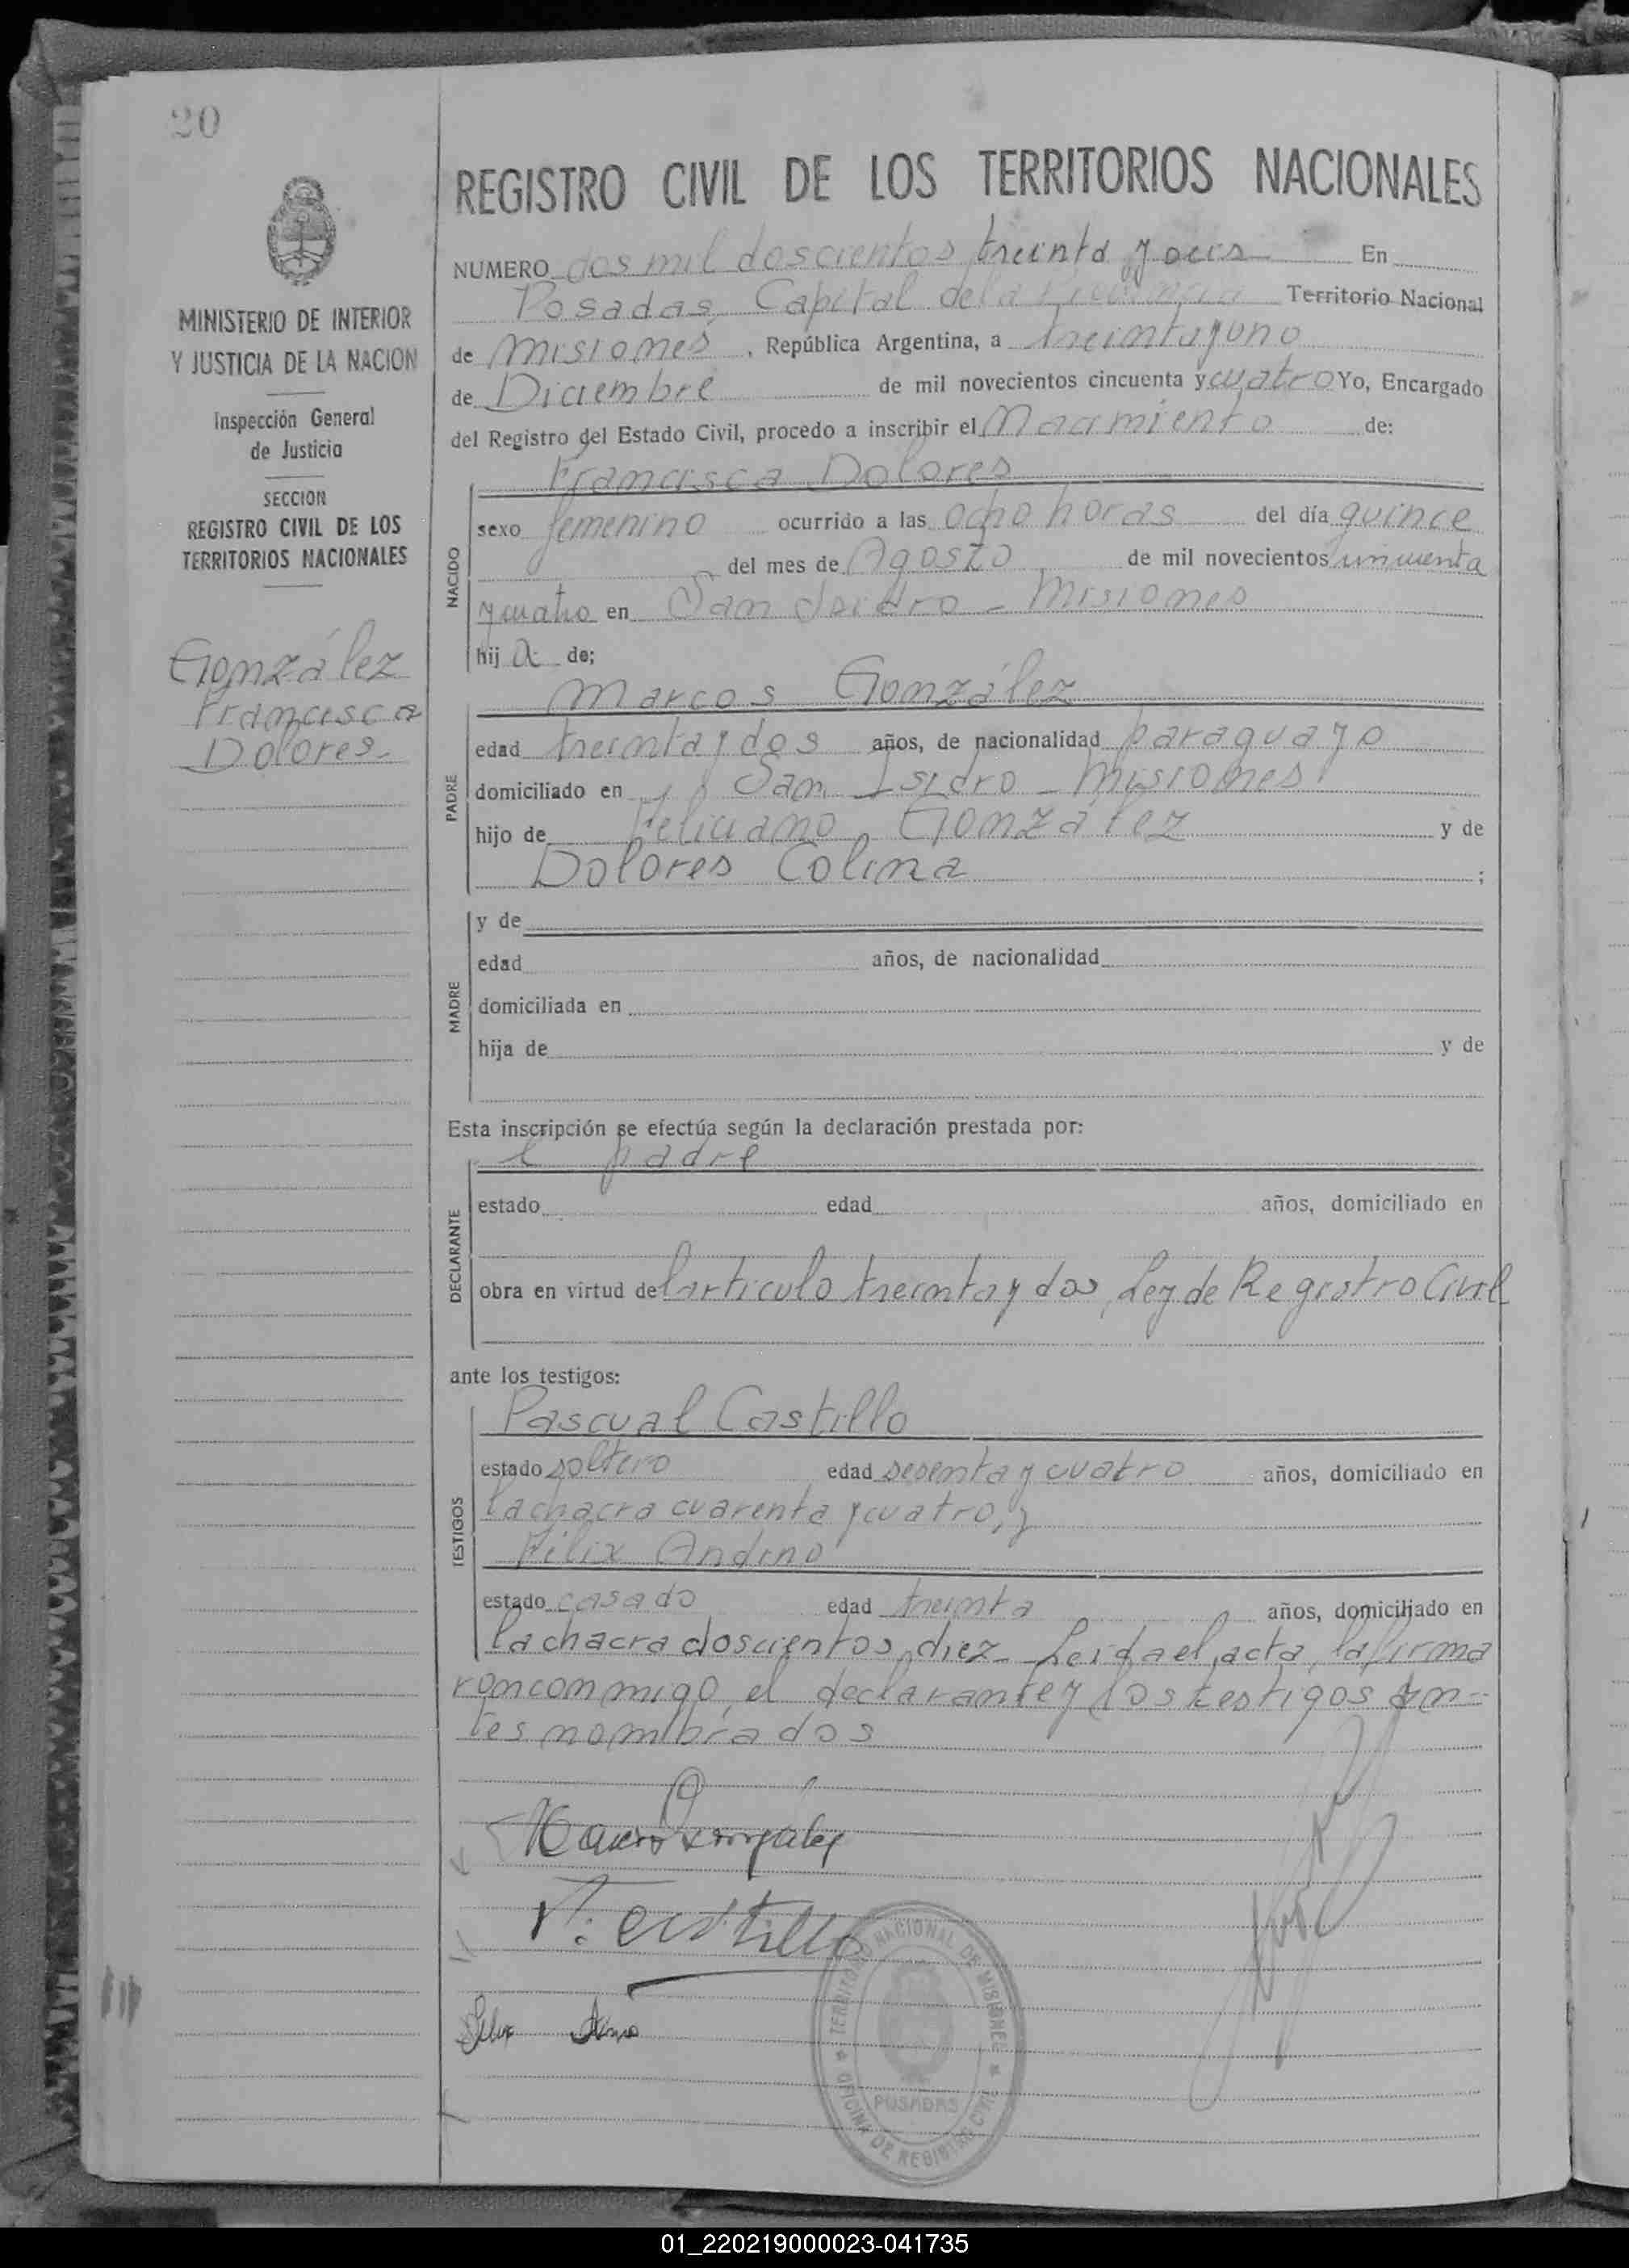 20
MINISTERIO DE INTERIOR
Y JUSTICIA DE LA NACION
Inspección General
de Justicia
SECCION
REGISTRO CIVIL DE LOS
TERRITORIOS NACIONALES
González
Francisca
Dolores.
REGISTRO CIVIL DE LOS TERRITORIOS NACIONALES
NUMERO dos mil doscientos treinta y seis En
Posadas, Capital de la Provincia Territorio Nacional
de Misiones, República Argentina, a treinta y uno
de Diciembre de mil novecientos cincuenta y cuatro Yo, Encargado
del Registro del Estado Civil, procedo a inscribir el Nacimiento de:
NACIDO
Francisca Dolores
sexo femenino ocurrido a las ocho horas del día quince
del mes de Agosto de mil novecientos cincuenta
y cuatro en San Isidro - Misiones
hija de;
PADRE
Marcos González
edad treinta y dos años, de nacionalidad paraguayo
domiciliado en San Isidro - Misiones
hijo de Feliciano González y de
Dolores Colina ;
MADRE
y de
edad años, de nacionalidad
domiciliada en
hija de y de
Esta inscripción se efectúa según la declaración prestada por:
DECLARANTE
l padre
estado edad años, domiciliado en
obra en virtud del artículo treinta y dos, Ley de Registro Civil
ante los testigos:
TESTIGOS
Pascual Castillo
estado soltero edad sesenta y cuatro años, domiciliado en
la chacra cuarenta y cuatro, y
Félix Andino
estado casado edad treinta años, domiciliado en
la chacra doscientos diez. Leída el acta, la firma
ron conmigo, el declarante y los testigos an-
tes nombrados
Marcos González
P. Castillo
TERRITORIO NACIONAL DE MISIONES
OFICINA DE REGISTRO CIVIL
POSADAS
01_220219000023-041735